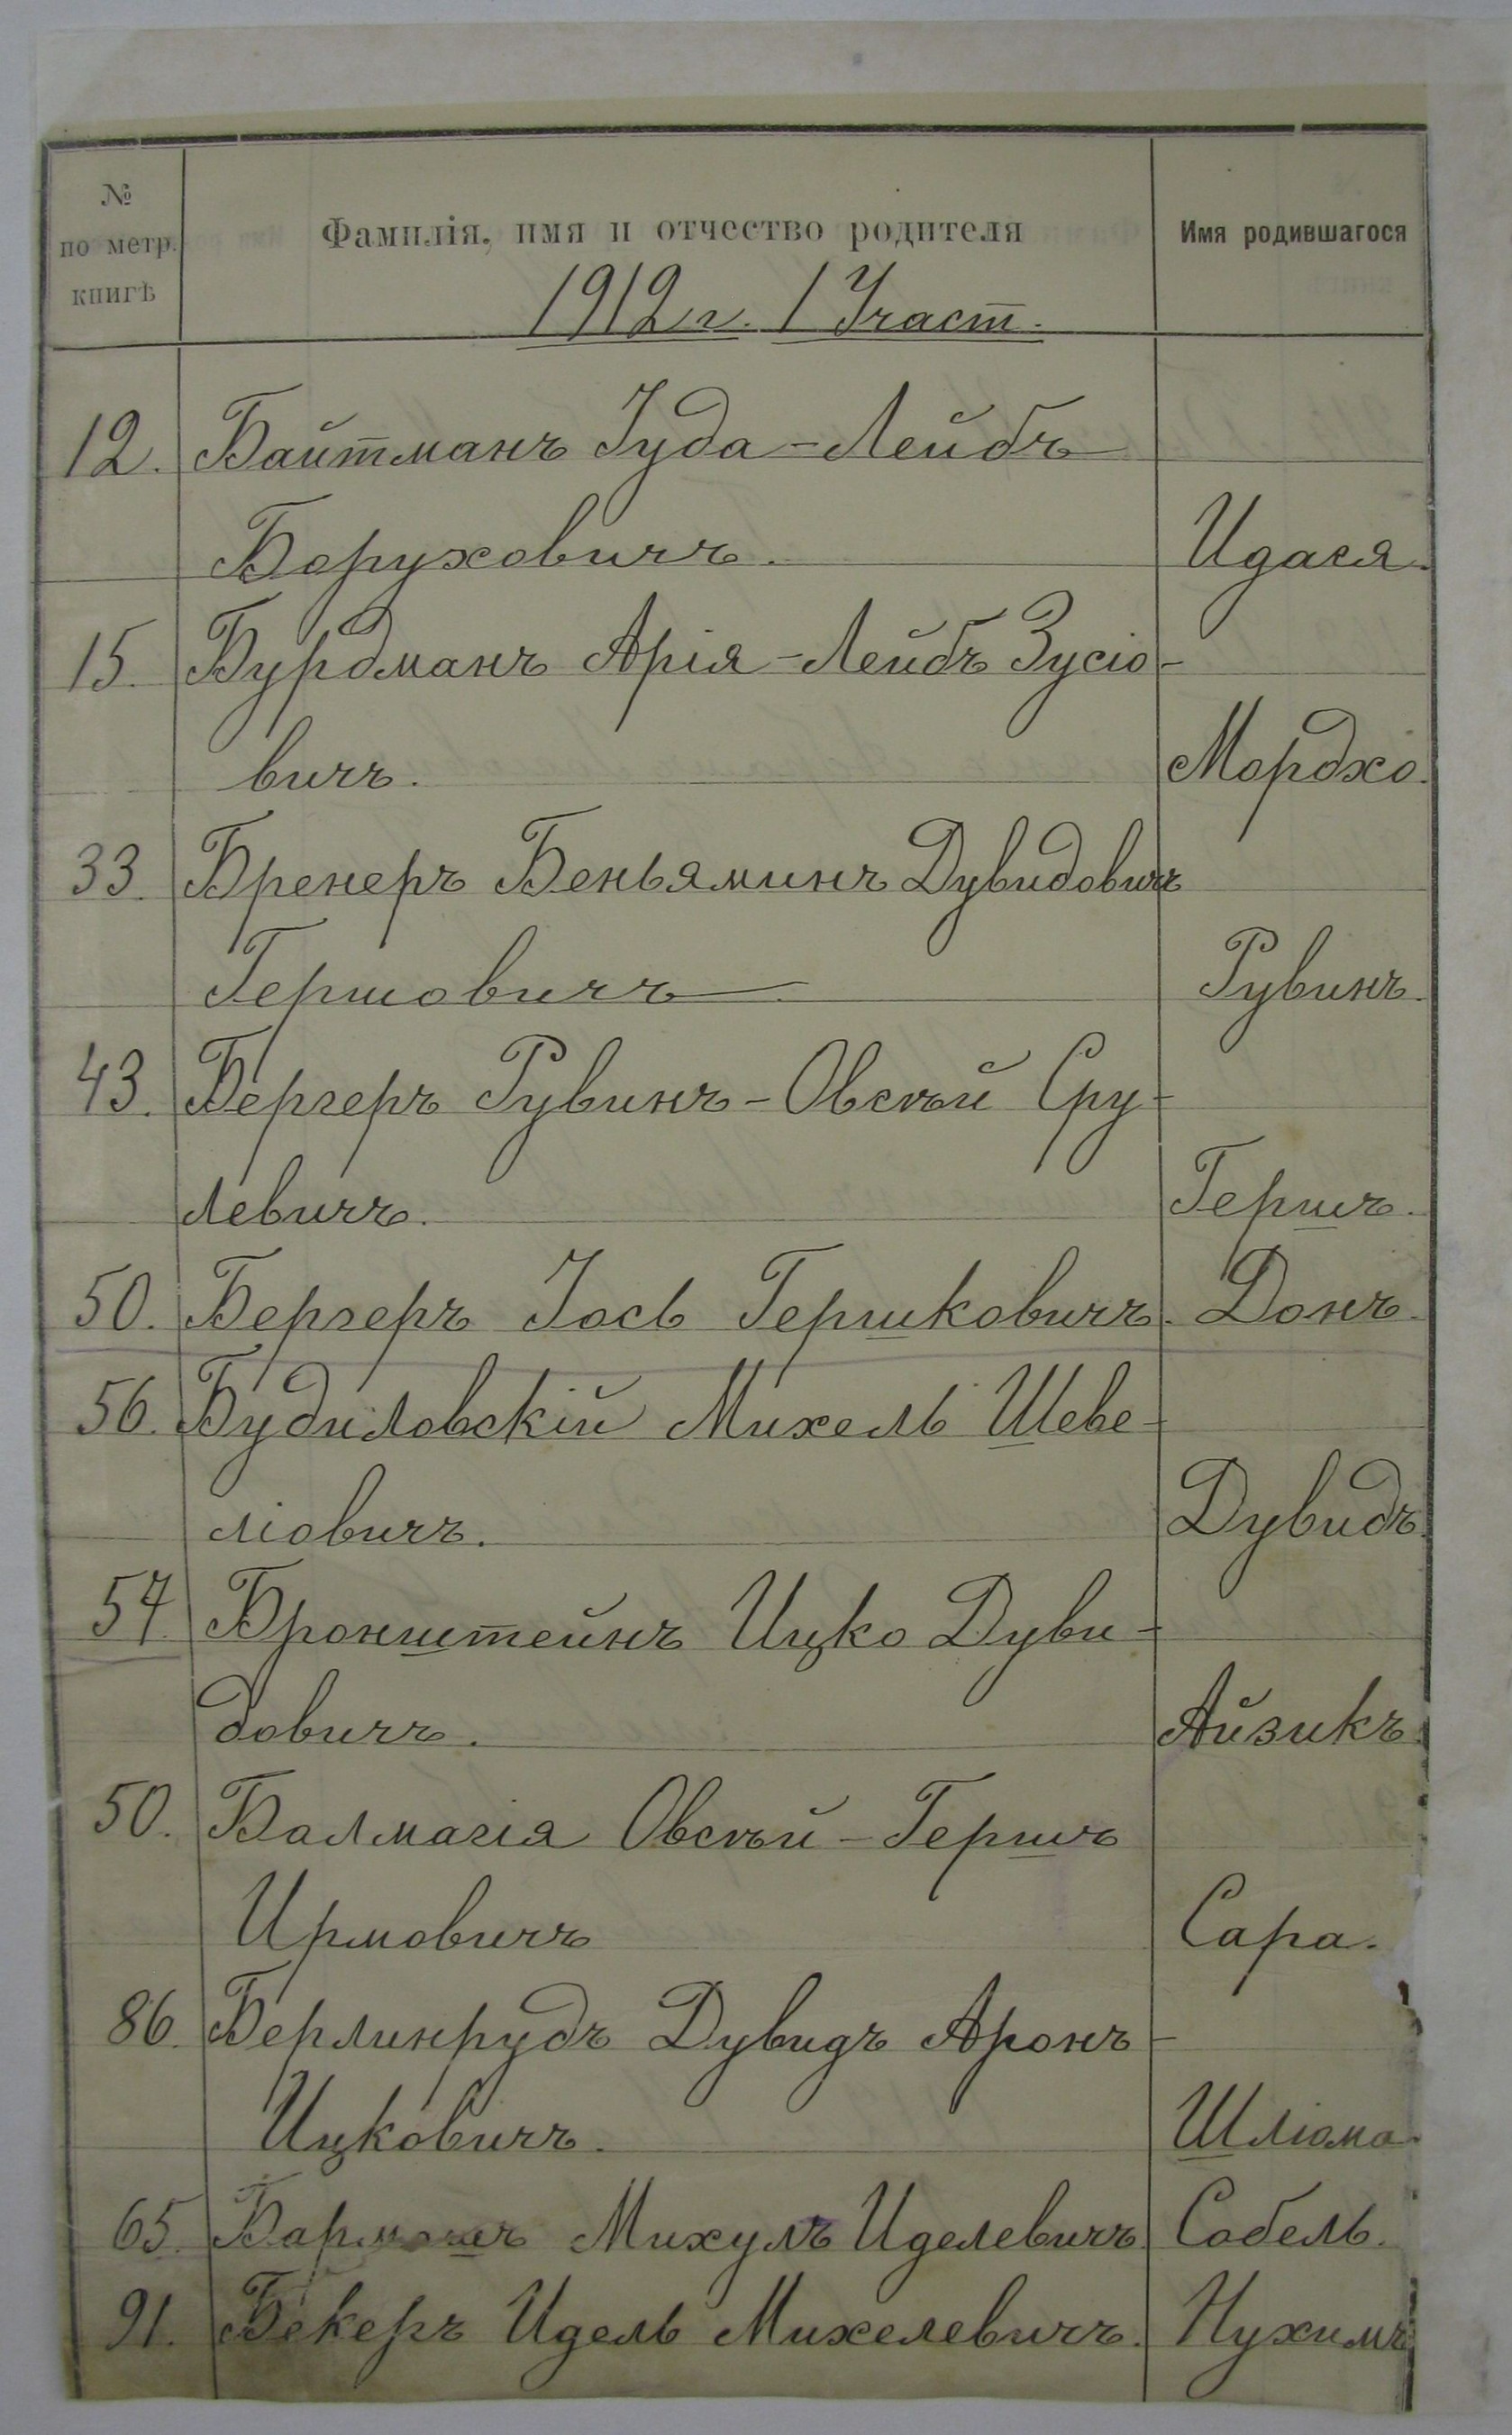 № по метр. книгѣ Фамилія, имя и отчество родителя Имя родившагося
1912 г. 1 Участ.
12. Байтманъ Іуда-Лейбъ
Боруховичъ. Идася.
15. Бурдманъ Арія-Лейбъ Зусіо-
вичъ. Мордхо.
33. Бренеръ Беньяминъ Дувидовичъ
Гершовичъ Рувинъ.
43. Бергеръ Рувинъ-Овсѣй Сру-
левичъ. Гершъ.
50. Бергеръ Іось Гершковичъ. Донъ.
56. Будиловскій Михель Шеве-
ліовичъ. Дувидъ.
57. Бронштейнъ Ицко Дуви-
довичъ. Айзикъ.
50. Балмагія Овсѣй-Гершъ
Ирмовичъ Сара.
86. Берлинрудъ Дувидъ Аронъ-
Ицковичъ. Шліома.
65. Михулъ Иделевичъ Собель.
91. Бекеръ Идель Михелевичъ. Нухимъ